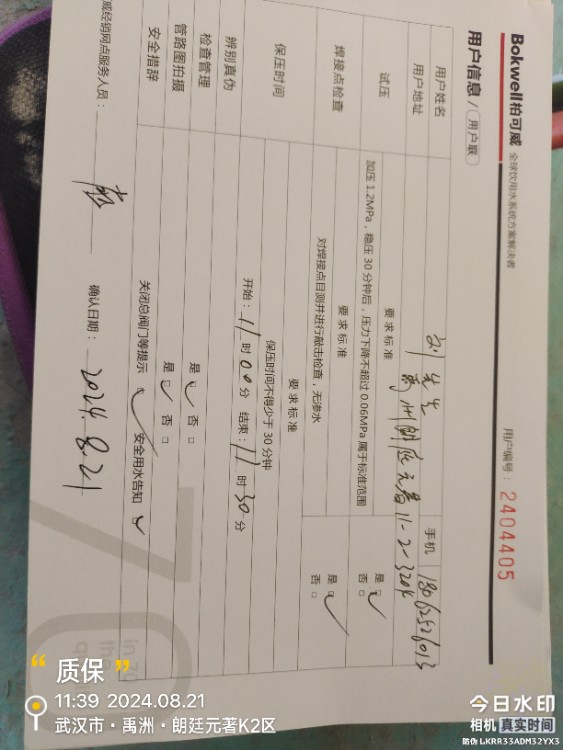 Bokwell柏可威 全球饮用水系统方案解决者
用户编号：2404405
用户信息 / 用户联
用户姓名 刘先生 手机 18062526013
用户地址 禹洲朗廷元著 11-2-3204
试压 要求标准
加压 1.2MPa，稳压 30 分钟后，压力下降不超过 0.06MPa 属于标准范围
是 ✓
否 □
焊接点检查 要求标准
对焊接点目测并进行敲击检查，无渗水
是 ✓
否 □
保压时间 要求标准
保压时间不得少于 30 分钟
开始：11 时 00 分 结束：11 时 30 分
辨别真伪
检查管理 是 ✓ 否 □
管路图拍摄 是 ✓ 否 □
安全措辞 关闭总阀门等提示 ✓ 安全用水告知 ✓
威经销网点服务人员：
确认日期：2024.8.21
“质保”
11:39 2024.08.21
武汉市·禹洲·朗廷元著K2区
今日水印
相机 真实时间
防伪 LKRR33ADM32YX3